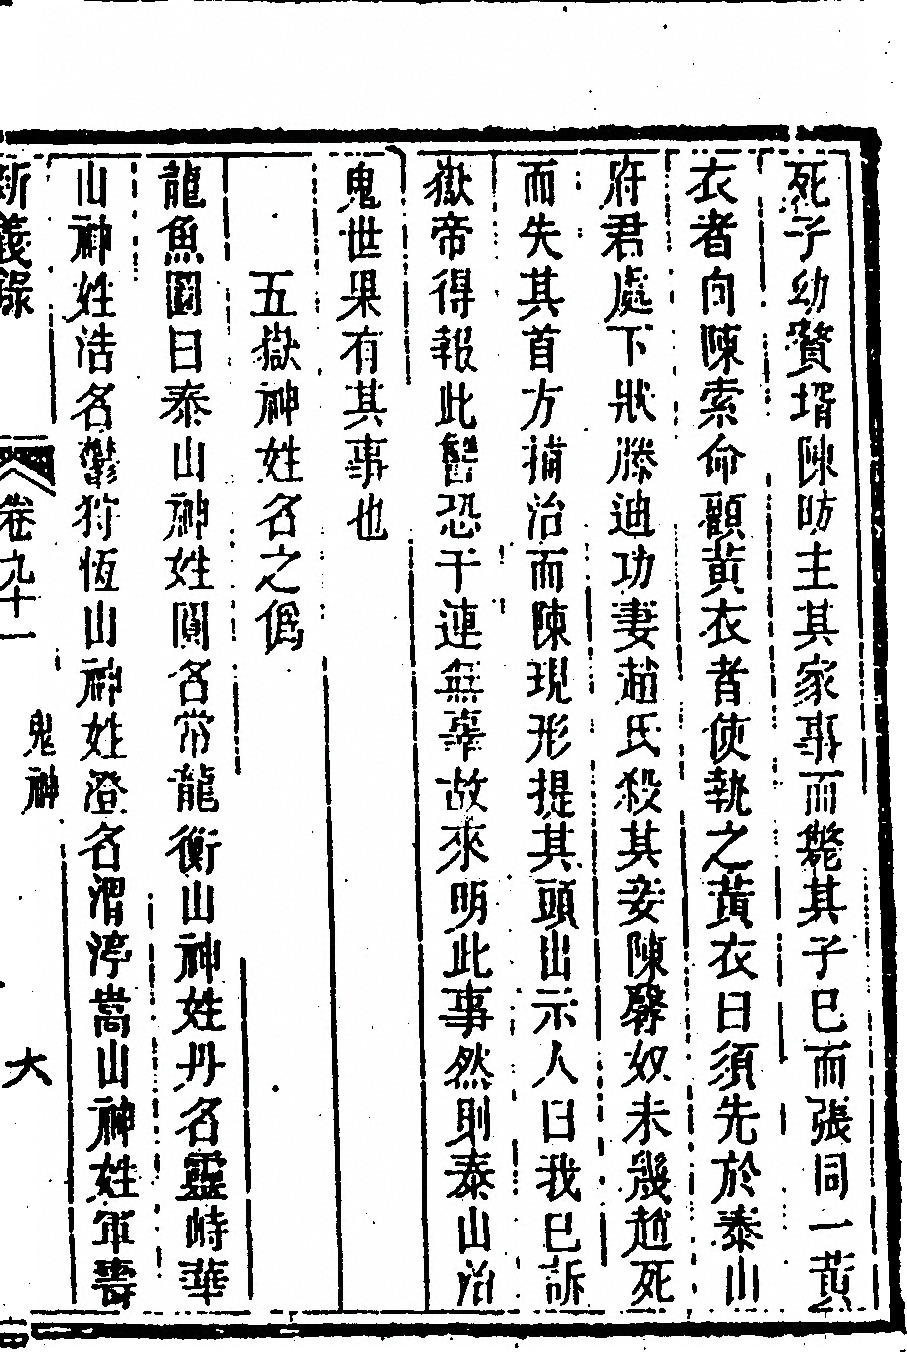 死子幼贅壻陳昉主其家事而斃其子已而張同一黃
衣者向陳索命顧黃衣者使執之黃衣曰須先於泰山
府君處下狀滕迪功妻趙氏殺其妾陳醫奴未幾趙死
而失其首方捕治而陳現形提其頭出示人曰我已訴
嶽帝得報此讐恐干連無辜故來明此事然則泰山治
鬼世果有其事也
五嶽神姓名之僞
龍魚圖曰泰山神姓圓名常龍衡山神姓丹名靈峙華
山神姓浩名鬱狩恆山神姓澄名渭渟嵩山神姓軍壽
新義錄
卷九十一
鬼神
大